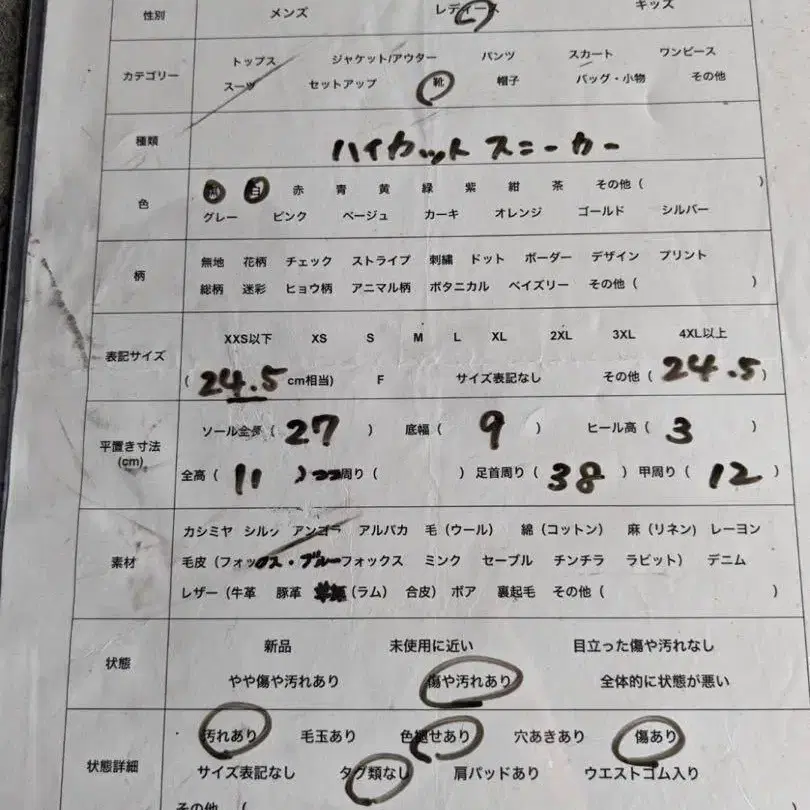 性別 メンズ レディース キッズ
カテゴリー トップス ジャケット/アウター パンツ スカート ワンピース
スーツ セットアップ 靴 帽子 バッグ・小物 その他
種類 ハイカット スニーカー
色 黒 白 赤 青 黄 緑 紫 紺 茶 その他( )
グレー ピンク ベージュ カーキ オレンジ ゴールド シルバー
柄 無地 花柄 チェック ストライプ 刺繍 ドット ボーダー デザイン プリント
総柄 迷彩 ヒョウ柄 アニマル柄 ボタニカル ペイズリー その他( )
表記サイズ XXS以下 XS S M L XL 2XL 3XL 4XL以上
(24.5cm相当) F サイズ表記なし その他(24.5)
平置き寸法(cm) ソール全長(27) 底幅(9) ヒール高(3)
全高(11) 周り( ) 足首周り(38) 甲周り(12)
素材 カシミヤ シルク アンゴラ アルパカ 毛(ウール) 綿(コットン) 麻(リネン) レーヨン
毛皮(フォックス・ブルーフォックス ミンク セーブル チンチラ ラビット) デニム
レザー(牛革 豚革 (ラム) 合皮) ボア 裏起毛 その他( )
状態 新品 未使用に近い 目立った傷や汚れなし
やや傷や汚れあり 傷や汚れあり 全体的に状態が悪い
状態詳細 汚れあり 毛玉あり 色褪せあり 穴あきあり 傷あり
サイズ表記なし タグ類なし 肩パッドあり ウエストゴム入り
その他 (